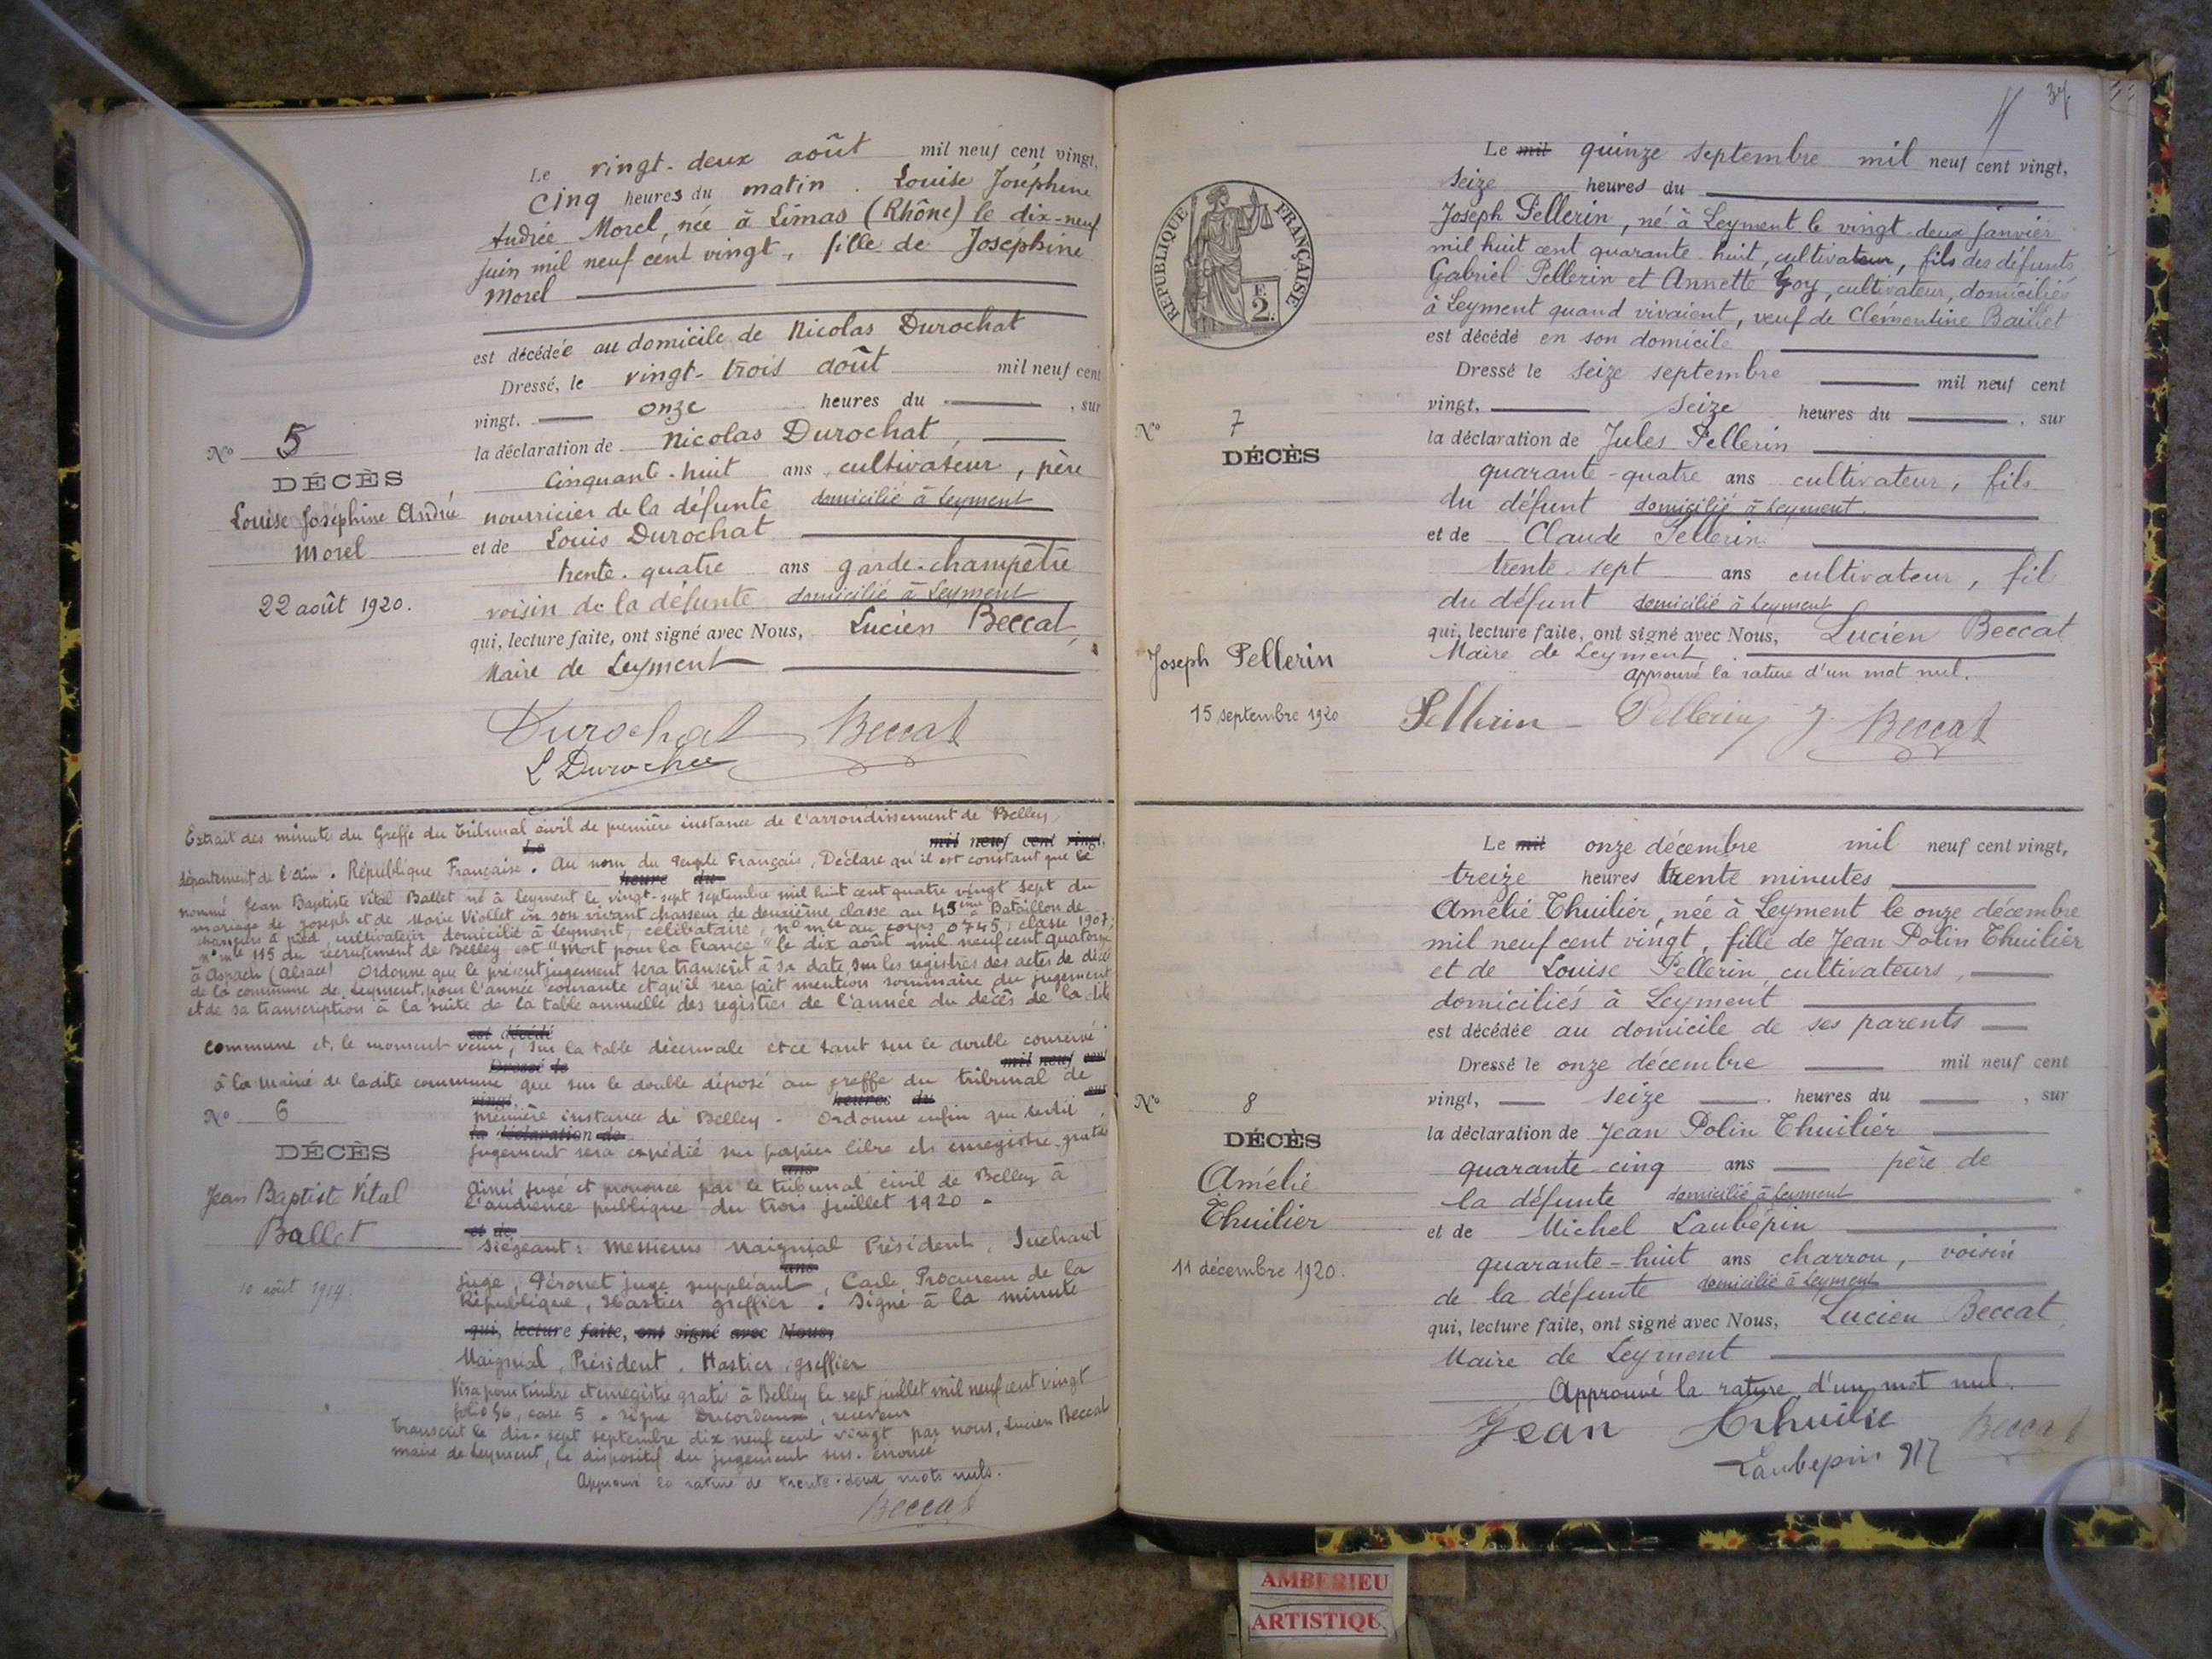 Le vingt-deux août mil neuf cent vingt,
cinq heures du matin. Louise Joséphine
Andrée Morel, née à Limas (Rhône) le dix-neuf
juin mil neuf cent vingt, fille de Joséphine
Morel
est décédée au domicile de Nicolas Durochat
Dressé, le vingt-trois août mil neuf cent
vingt. onze heures du , sur
la déclaration de Nicolas Durochat,
cinquante-huit ans cultivateur, père
nourricier de la défunte domicilié à Leyment
et de Louis Durochat
trente-quatre ans garde-champêtre
voisin de la défunte domicilié à Leyment
qui, lecture faite, ont signé avec Nous, Lucien Beccat,
Maire de Leyment
Nº 5
DÉCÈS
Louise Joséphine André
Morel
22 août 1920.
Durochat Beccat
L Durochat
Extrait des minutes du Greffe du Tribunal civil de première instance de l'arrondissement de Belley,
Le mil neuf cent vingt,
département de l'Ain. République Française. Au nom du Peuple Français, Déclare qu'il est constant que le
heure du
nommé Jean Baptiste Vital Ballet né à Leyment le vingt-sept septembre mil huit cent quatre vingt sept du
mariage de Joseph et de Marie Viollet en son vivant chasseur de deuxième classe au 45ème Bataillon de
chasseurs à pied, cultivateur domicilié à Leyment, célibataire, nº mle au corps 0745, classe 1907,
nº mle 115 du recrutement de Belley est "Mort pour la France" le dix août mil neuf cent quatorze
à Aspach (Alsace) Ordonne que le présent jugement sera transcrit à sa date, sur les registres des actes de décès
de la commune de Leyment, pour l'année courante et qu'il sera fait mention sommaire du jugement
et de sa transcription à la suite de la table annuelle des registres de l'année du décès de la dite
est décédé
commune et, le moment venu, sur la table décennale et ce tant sur le double conservé
Dressé le mil neuf cent
à la mairie de ladite commune que sur le double déposé au greffe du tribunal de
vingt heures du sur
première instance de Belley. Ordonne enfin que
la déclaration de
jugement sera expédié sur papier libre et enregistré gratis
ans
Ainsi jugé et prononcé par le tribunal civil de Belley à
l'audience publique du trois juillet 1920.
et de
Siégeant: Messieurs Maignial Président, Suchard
ans
juge, Péronet juge suppléant, Procureur de la
République, Hastier greffier. Signé à la minute
qui, lecture faite, ont signé avec Nous,
Maignial, Président. Hastier, greffier
Visa pour timbre et enregistré gratis à Belley le sept juillet mil neuf cent vingt
folio 56, case 5. signé receveur
Transcrit le dix-sept septembre dix neuf cent vingt par nous, Lucien Beccat
maire de Leyment, le dispositif du jugement sus-énoncé
Approuvé la rature de trente-deux mots nuls.
Beccat
Nº 6
DÉCÈS
Jean Baptiste Vital
Ballet
10 août 1914.
37
Le mil quinze septembre mil neuf cent vingt,
seize heures du
Joseph Pellerin, né à Leyment le vingt-deux janvier
mil huit cent quarante-huit, cultivateur, fils des défunts
Gabriel Pellerin et Annette Goy, cultivateur, domiciliés
à Leyment quand vivaient, veuf de Clementine Bailiet
est décédé en son domicile
Dressé le seize septembre mil neuf cent
vingt, seize heures du , sur
la déclaration de Jules Pellerin
quarante-quatre ans cultivateur, fils
du défunt domicilié à Leyment.
et de Claude Pellerin
trente-sept ans cultivateur, fils
du défunt domicilié à Leyment
qui, lecture faite, ont signé avec Nous, Lucien Beccat
Maire de Leyment
Approuvé la rature d'un mot nul.
RÉPUBLIQUE FRANÇAISE
E.
2.
Nº 7
DÉCÈS
Joseph Pellerin
15 septembre 1920
Pellerin Pellerin J. Beccat
Le mil onze décembre mil neuf cent vingt,
treize heures trente minutes
Amélie Thuilier, née à Leyment le onze décembre
mil neuf cent vingt, fille de Jean Polin Thuilier
et de Louise Pellerin, cultivateurs,
domiciliés à Leyment
est décédée au domicile de ses parents
Dressé le onze décembre mil neuf cent
vingt, seize heures du , sur
la déclaration de Jean Polin Thuilier
quarante-cinq ans père de
la défunte domicilié à Leyment
et de Michel Laubépin
quarante-huit ans charron, voisin
de la défunte domicilié à Leyment
qui, lecture faite, ont signé avec Nous, Lucien Beccat,
Maire de Leyment
Approuvé la rature d'un mot nul.
Nº 8
DÉCÈS
Amélie
Thuilier
11 décembre 1920.
Jean Thuilie Beccat
Laubepin
AMBERIEU
ARTISTIQU